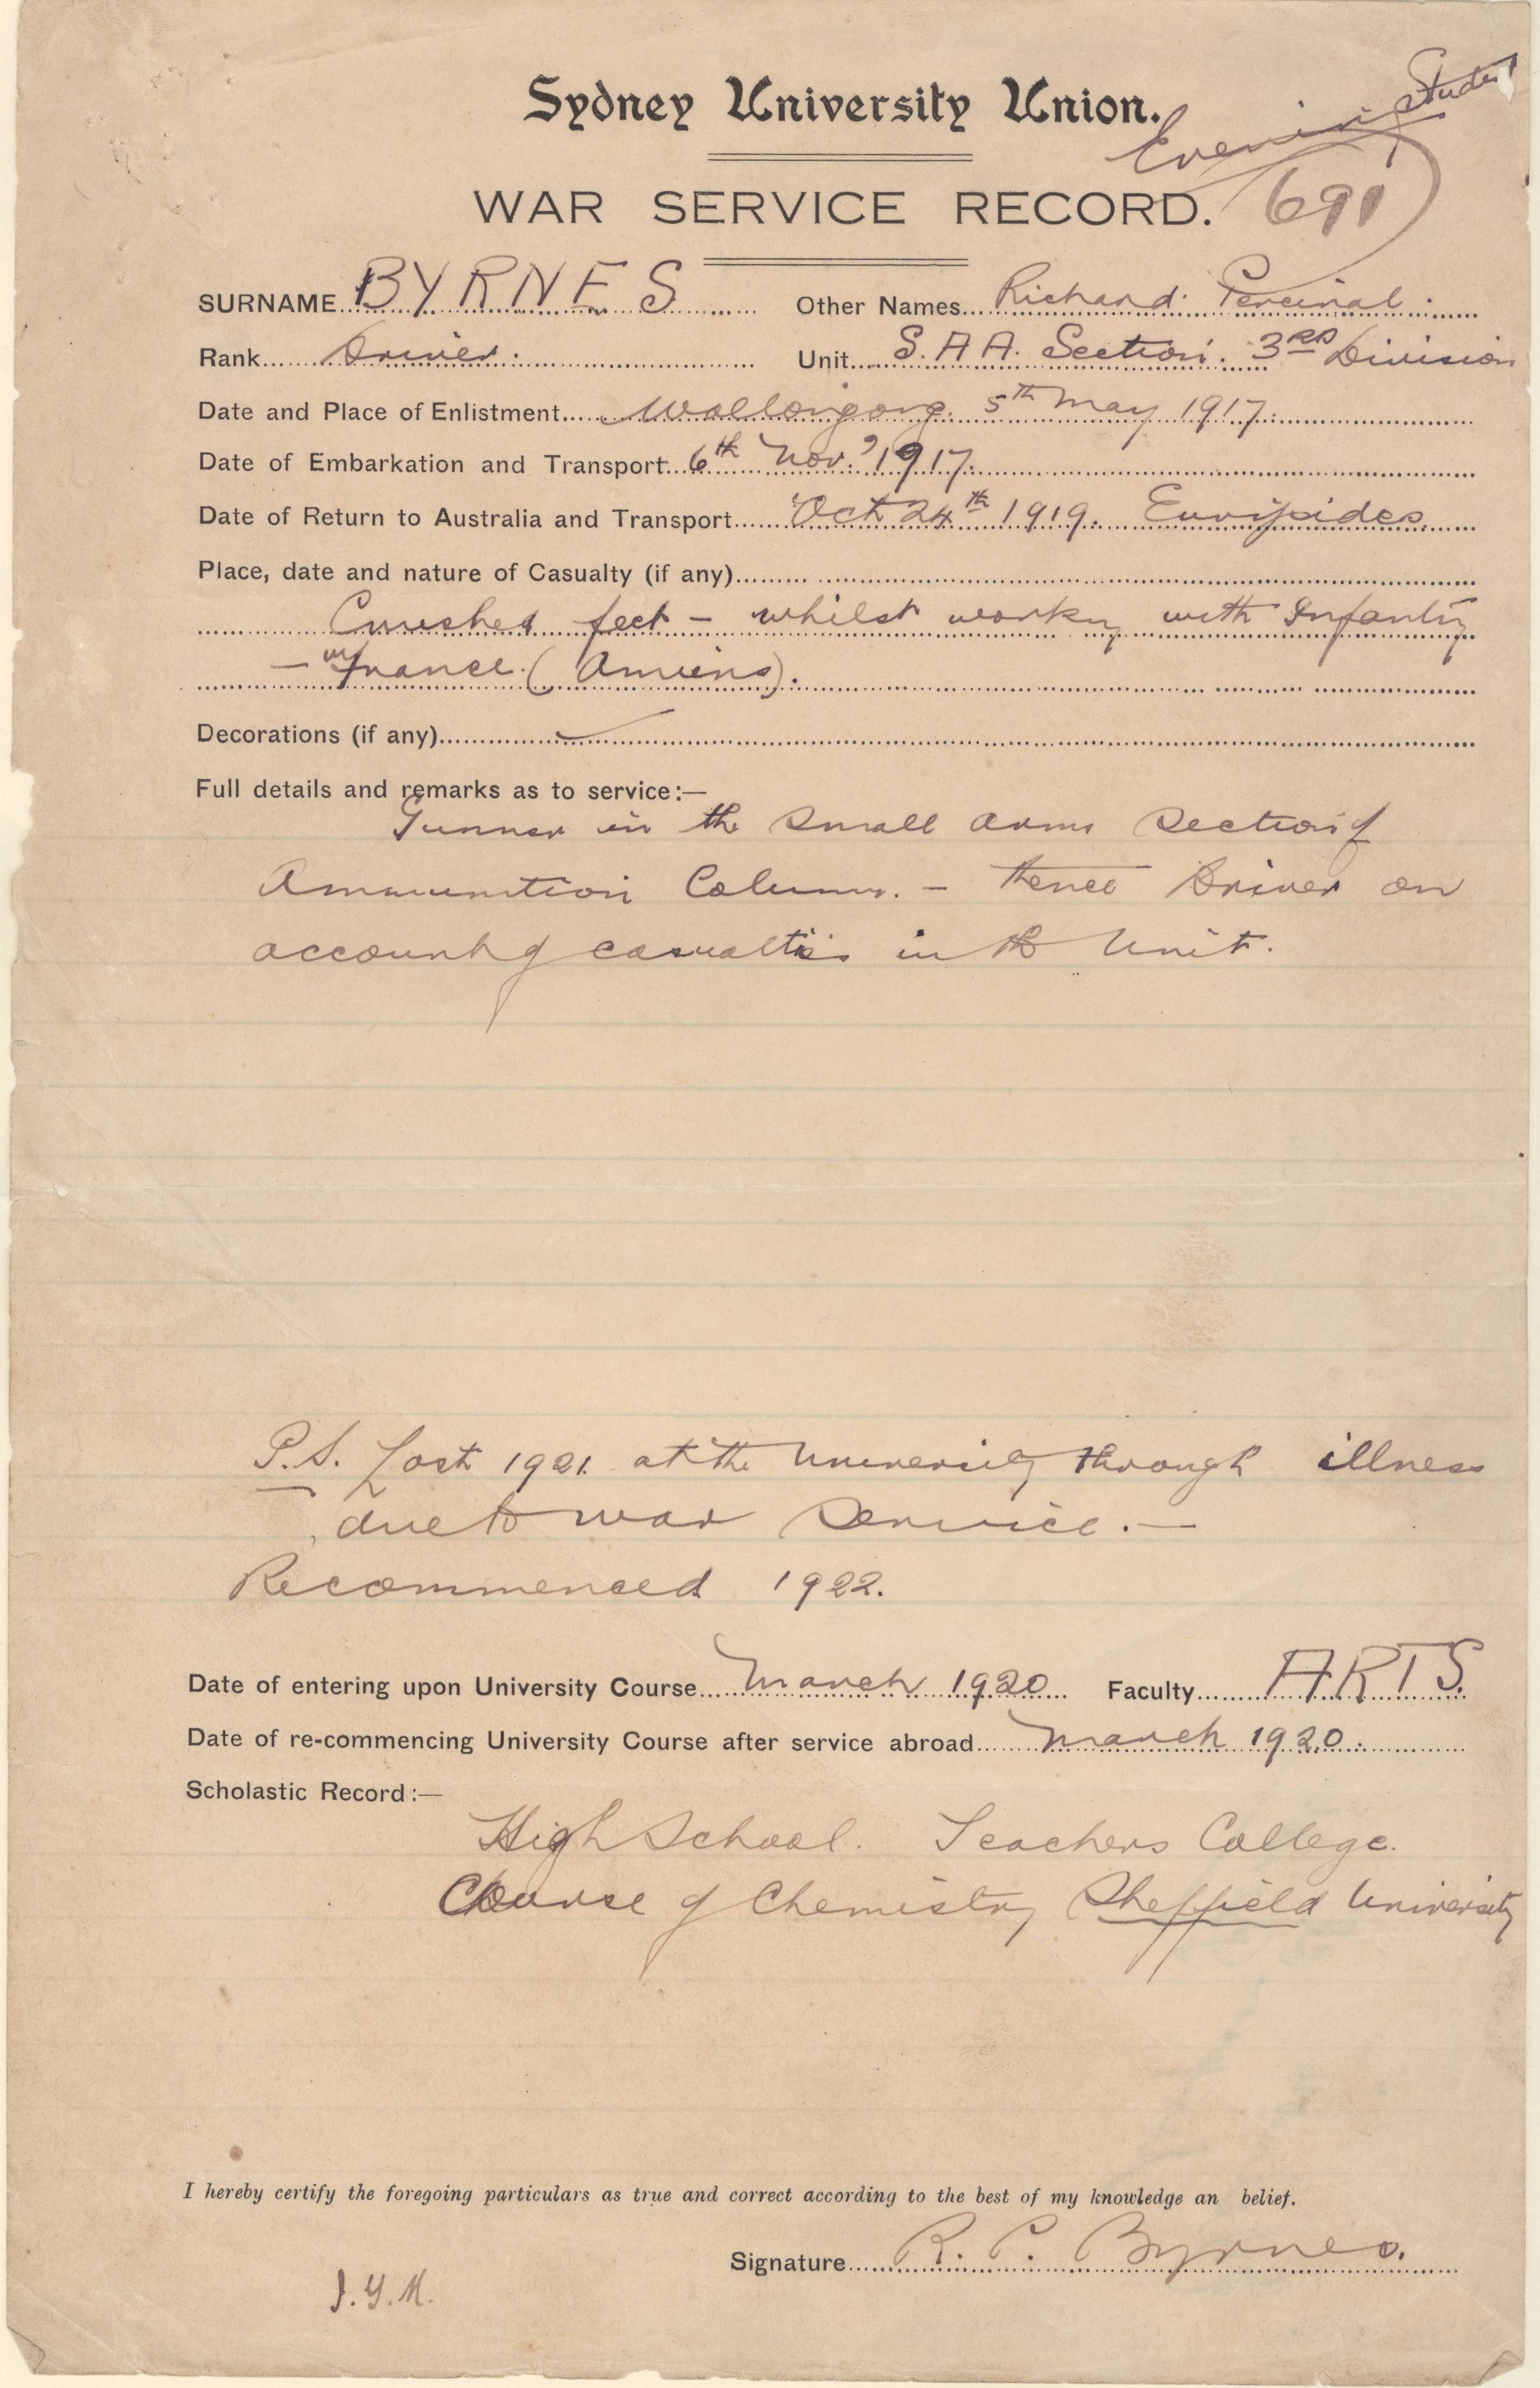 Sydney University Union.
Evening Student
WAR SERVICE RECORD. 691
SURNAME BYRNES Other Names Richard Percival.
Rank Driver. Unit S.A.A. Section. 3RD Division
Date and Place of Enlistment Wollongong. 5th May 1917.
Date of Embarkation and Transport 6th Nov. 1917.
Date of Return to Australia and Transport Oct 24th 1919. Euripides
Place, date and nature of Casualty (if any)
Crushed feet - whilst working with Infantry
- in France (Amiens).
Decorations (if any)
Full details and remarks as to service:—
Gunner in the Small Arms Section of
Ammunition Column. - thence Driver on
account of casualties in the Unit.
P.S. Lost 1921 at the University through illness
due to war service. —
Recommenced 1922.
Date of entering upon University Course March 1920 Faculty ARTS.
Date of re-commencing University Course after service abroad March 1920.
Scholastic Record:—
High School. Teachers College.
Course of Chemistry Sheffield University
I hereby certify the foregoing particulars as true and correct according to the best of my knowledge an belief.
Signature R. P. Byrnes.
J.Y.M.